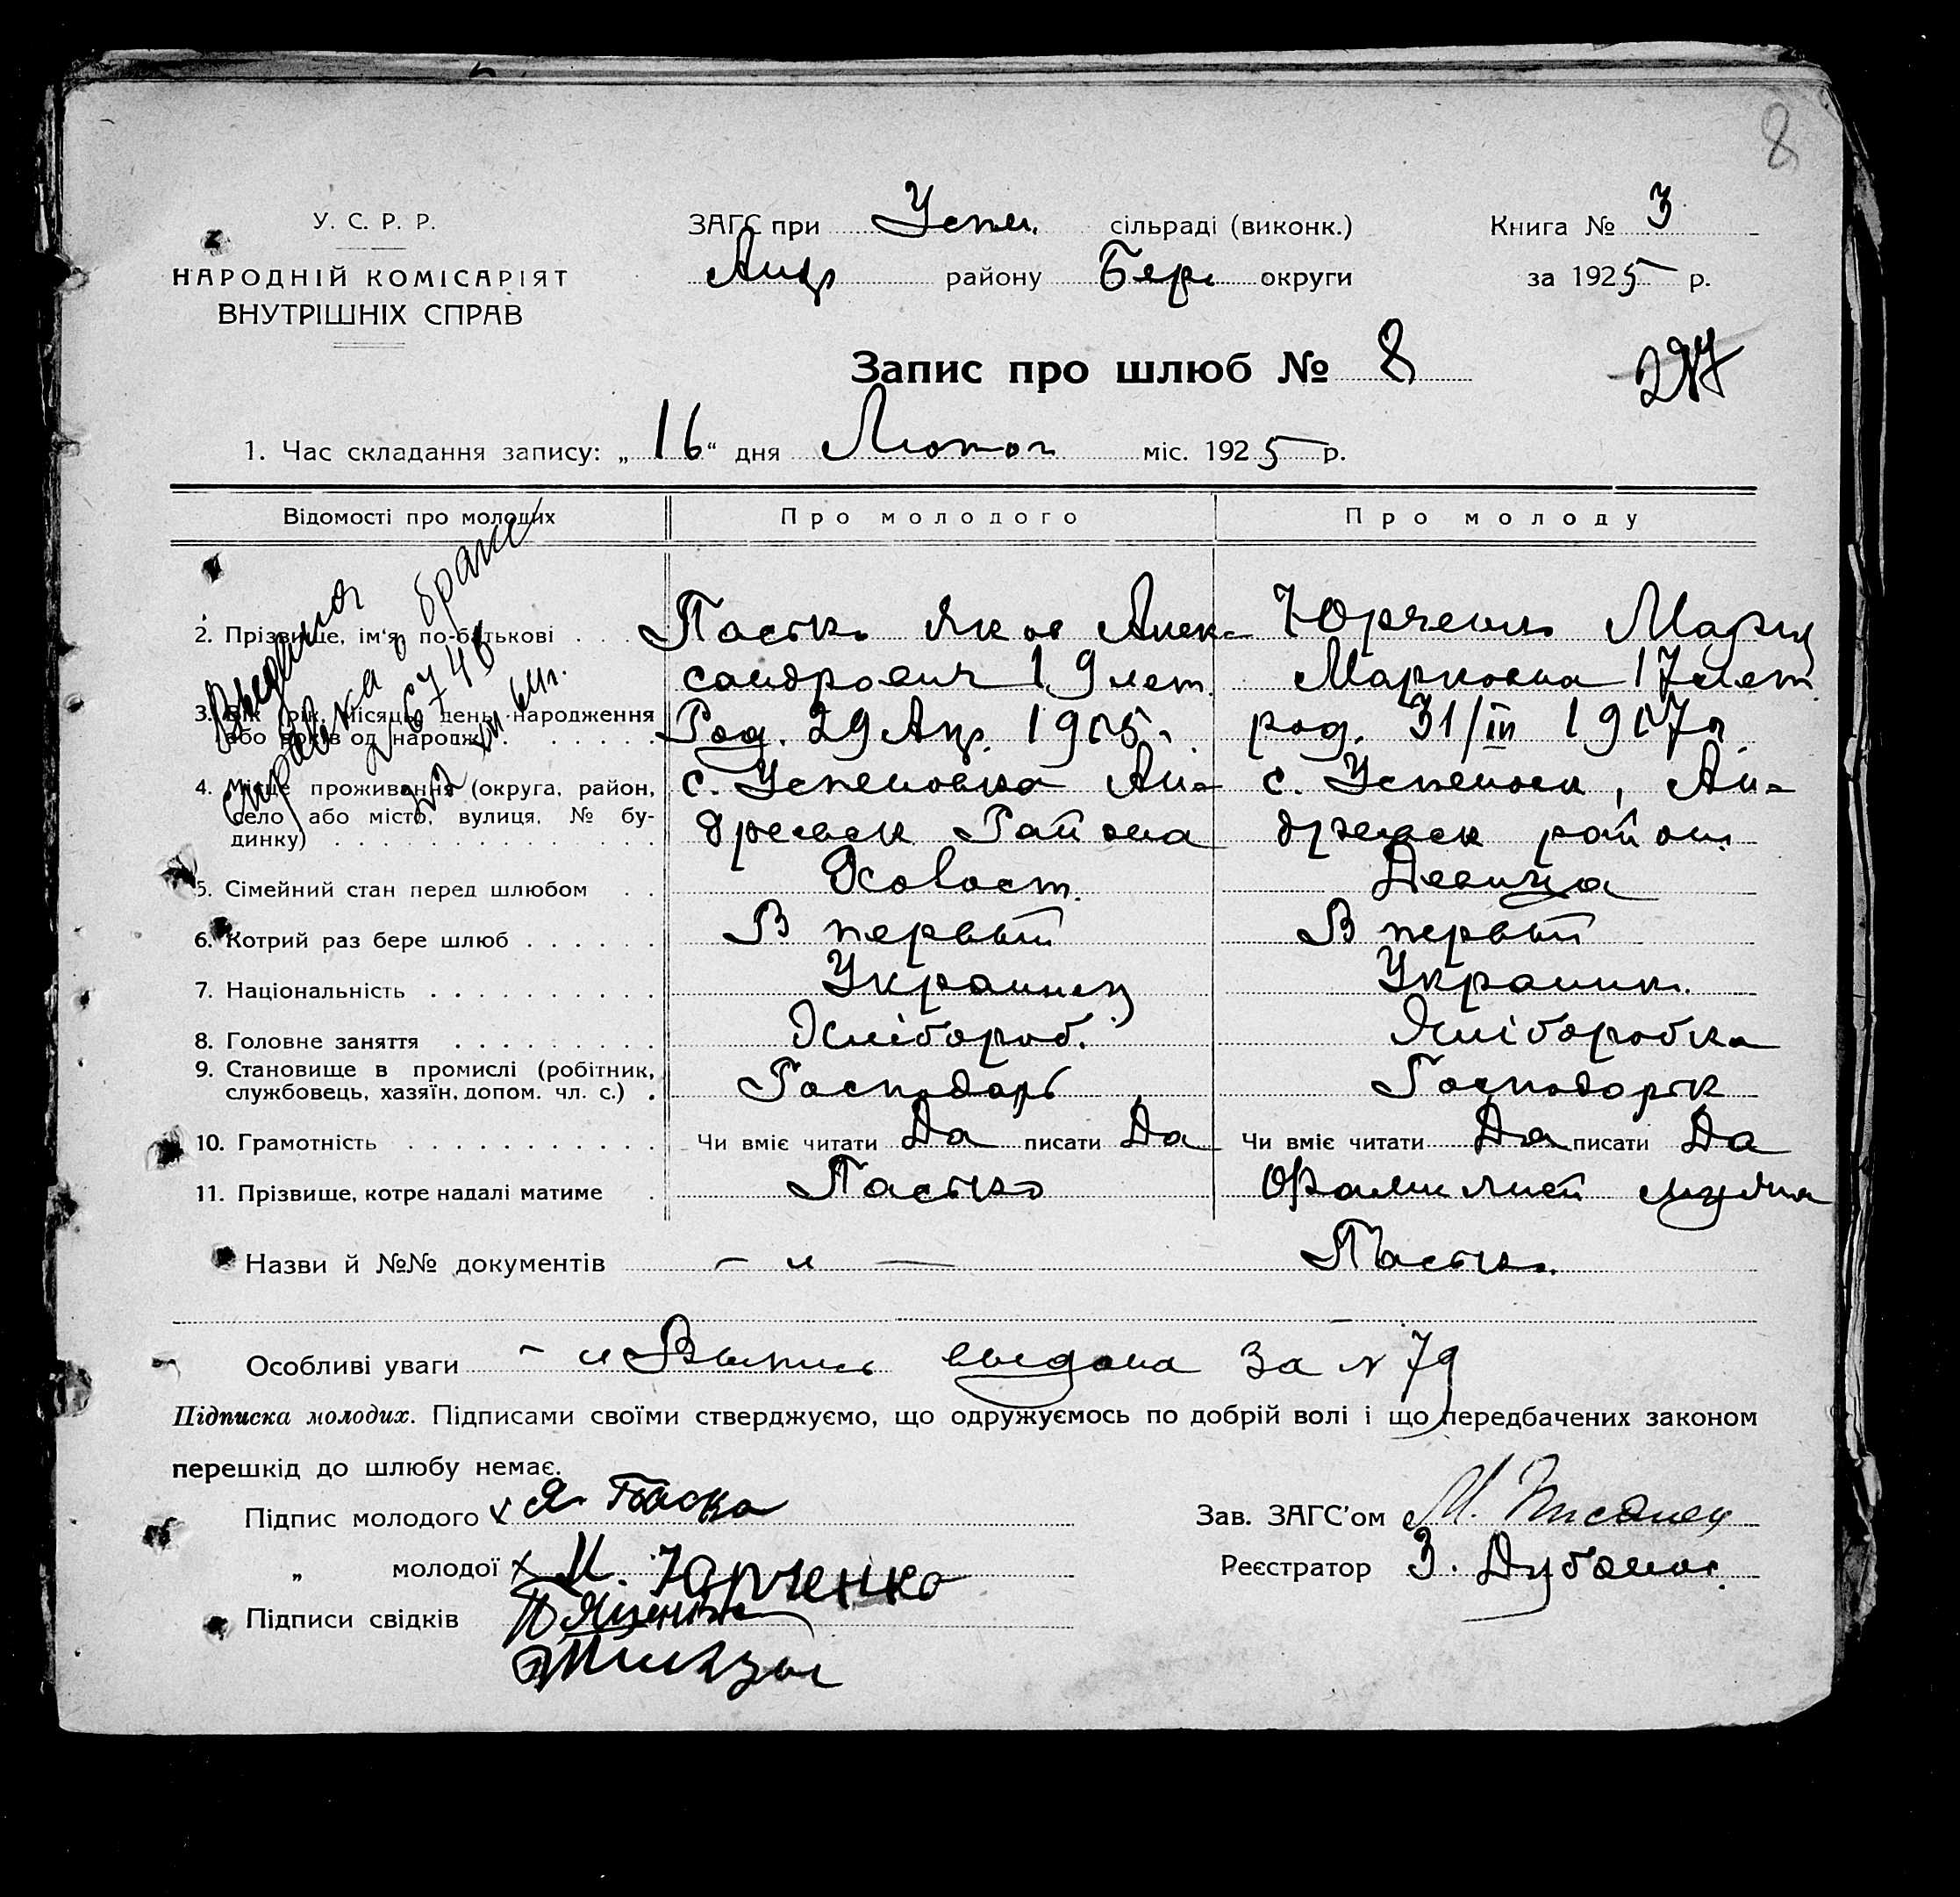 8
У. С. Р. Р.
НАРОДНІЙ КОМІСАРІЯТ
ВНУТРІШНІХ СПРАВ
ЗАГС при Успен. сільраді (виконк.)
Андр району Берд округи
Книга № 3
за 1925 р.
Запис про шлюб № 8
1. Час складання запису: „16“ дня Лютого міс. 1925 р.
Відомості про молодих
Про молодого
Про молоду
Выдана
справка о браке
№ 6746
2. Прізвище, ім'я, по-батькові . . .
Пастко Яков Алек-
сандрович 19 лет.
Юрченко Мария
Марковна 17 лет
3. Вік, рік, місяць, день народження
або років од народж. . . . . .
Род. 29 Апр. 1905 г.
род. 31/III 1907 г.
4. Місце проживання (округа, район,
село або місто, вулиця, № бу-
динку) . . . . . . . . . . . . . .
с. Успеновка Ан-
дреевск Района
с. Успеновк, Ан-
дреевск район.
5. Сімейний стан перед шлюбом . .
Холост.
Девица
6. Котрий раз бере шлюб . . . . . .
В первый
В первый
7. Національність . . . . . . . . . .
Украинец
Украинк.
8. Головне заняття . . . . . . . . .
Хлібороб.
Хліборобка
9. Становище в промислі (робітник,
службовець, хазяїн, допом. чл. с.) .
Господарь
Господарк
10. Грамотність . . . . . . . . . . .
Чи вміє читати Да писати Да
Чи вміє читати Да писати Да
11. Прізвище, котре надалі матиме .
Пастко
Фамилией мужа
Назви й №№ документів — „ —
Пастко.
Особливі уваги — „ Выпись выдана за № 79
Підписка молодих. Підписами своїми стверджуємо, що одружуємось по добрій волі і що передбачених законом
перешкід до шлюбу немає.
Підпис молодого Я. Паско
„ молодої М. Юрченко
Підписи свідків
Зав. ЗАГС'ом М.
Реєстратор З.